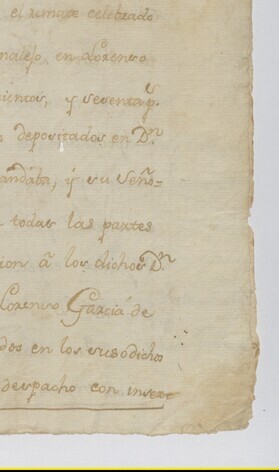 el remate celebrado
nalejo, en Lorenso
cientos, y sesenta p.s
depositados en D.n
andaba, y su Seño=
todas las partes
cion â los dichos D.n
Lorenso Garciá de
dos en los susodichos
despacho con inserc